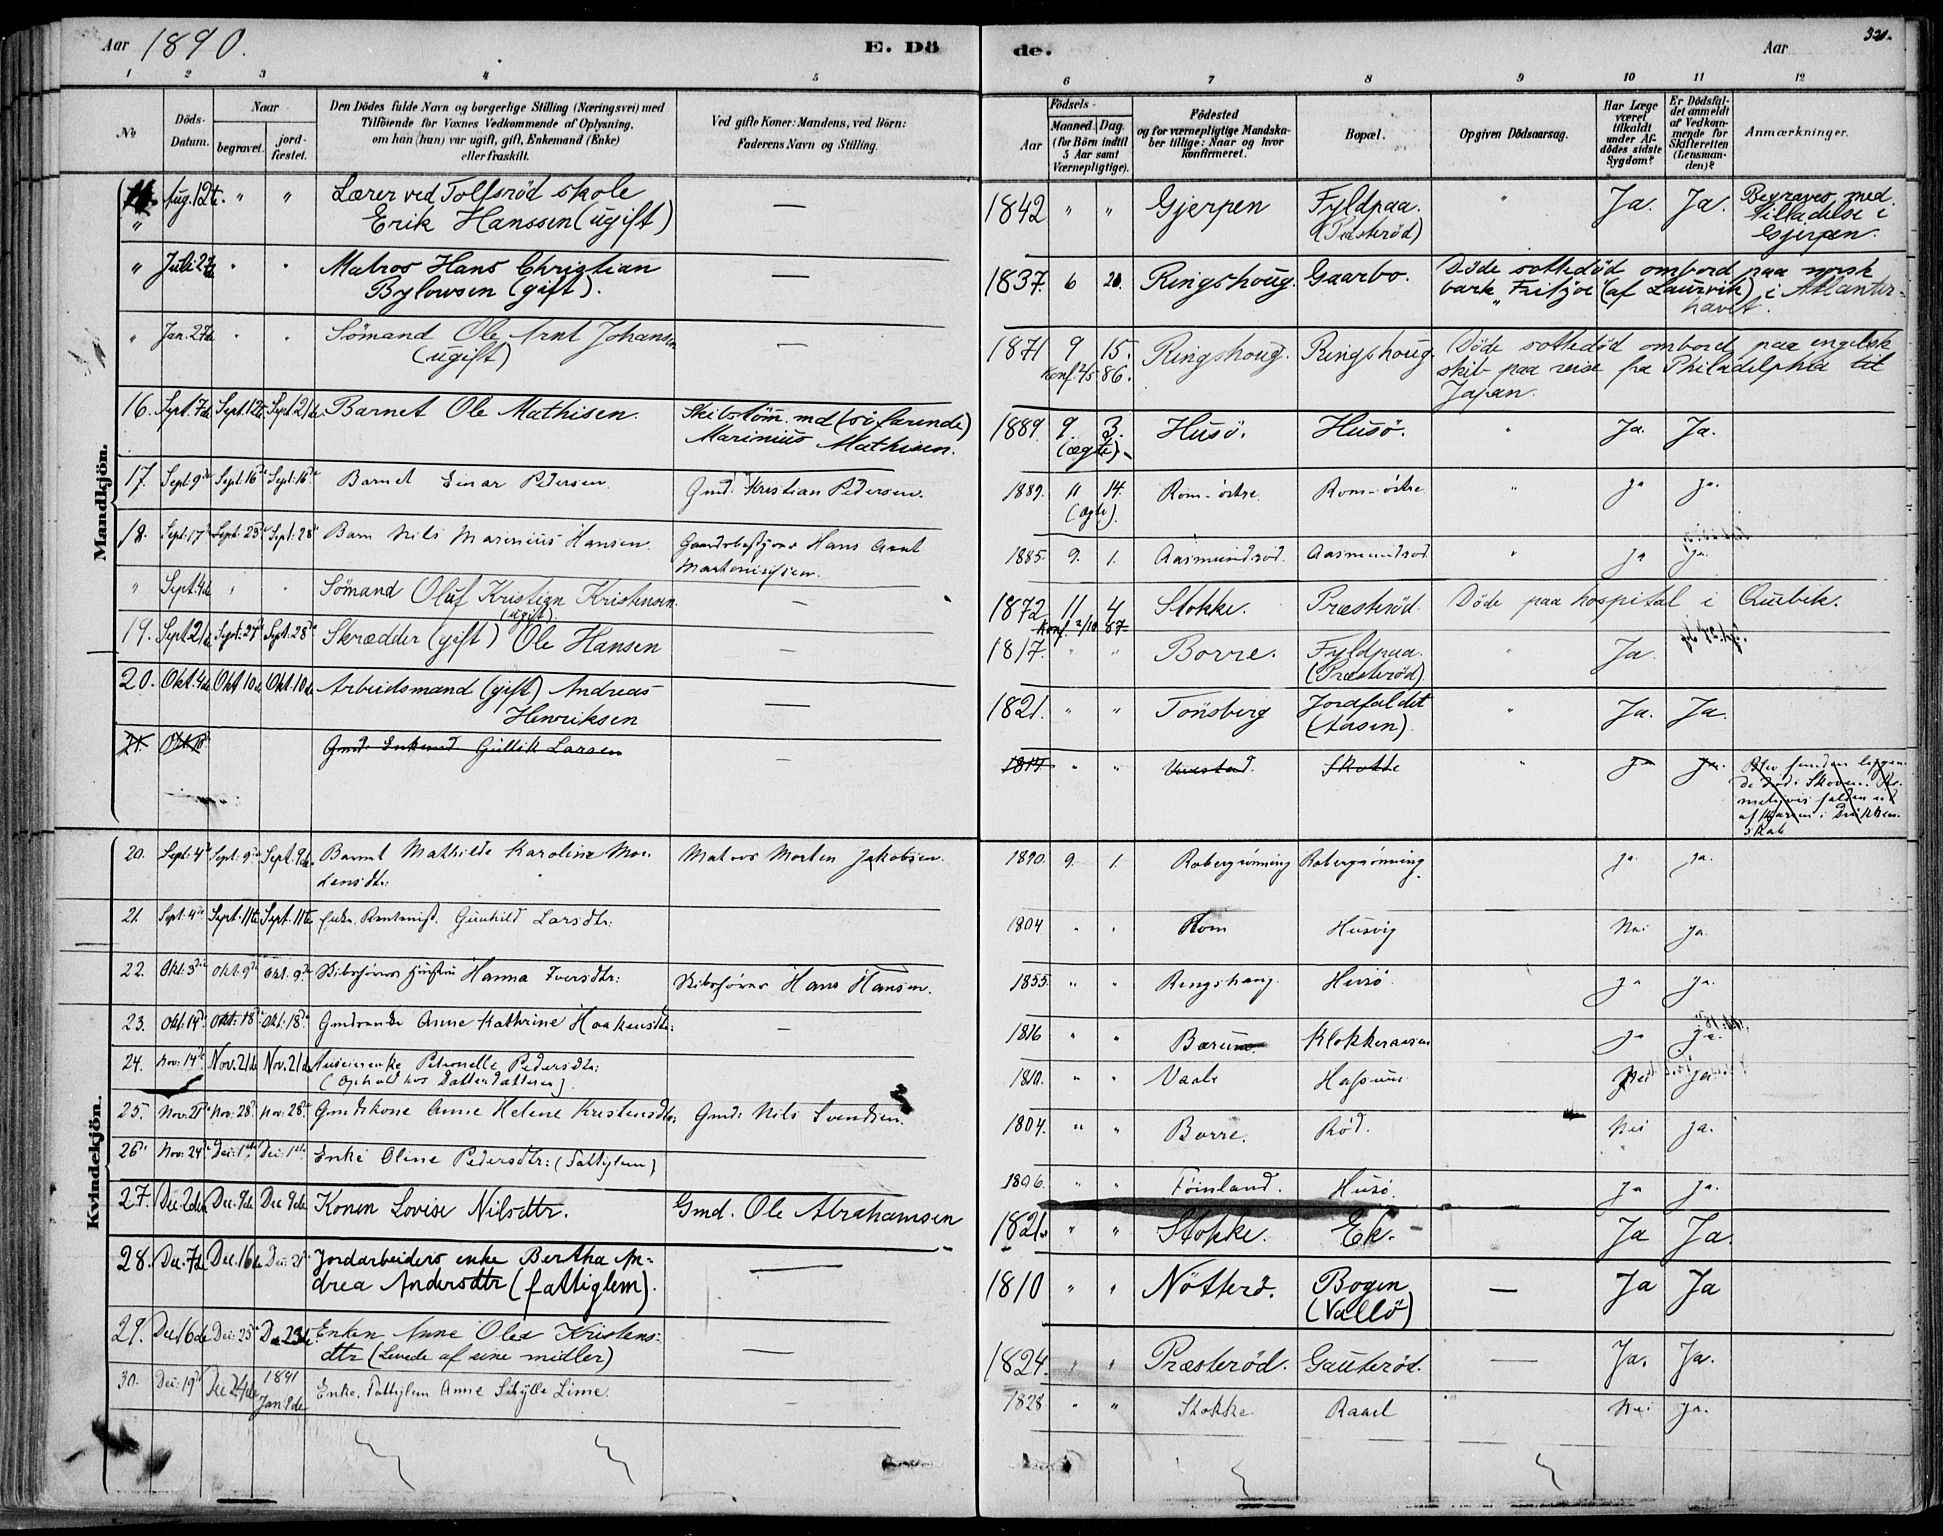 Aar 1890. E. Dö de. Aar 320.
1 2 3 4 5 6 7 8 9 10 11 12
No
Döds-Datum.
Naar
begravet. jordfæstet.
Den Dödes fulde Navn og borgerlige Stilling (Næringsvei) med
Tilföiende for Voxnes Vedkommende af Oplysning,
om han (hun) var ugift, gift, Enkemand (Enke)
eller fraskilt.
Ved gifte Koner: Mandens, ved Börn:
Faderens Navn og Stilling.
Födsels-
Aar Maaned. Dag.
(for Börn indtil
5 Aar samt
Værnepligtige).
Födested
og for værnepligtige Mandska-
ber tillige: Naar og hvor
konfirmeret.
Bopæl.
Opgiven Dödsaarsag.
Har Læge
været
tilkaldt
under Af-
dödes sidste
Sygdom?
Er Dödsfal-
det anmeldt
af Vedkom-
mende for
Skifteretten
(Lensman-
den)?
Anmærkninger.
Mandkjön.
" Aug. 12te. " " Lærer ved Tolfsröd skole — 1842 " " Gjerpen Fyldpaa. " Ja. Ja. Begraves med
Erik Hanssen (ugift) (Præsteröd) tilladelse i
Gjerpen.
" Juli 27de " " Matros Hans Christian — 1837. 6 20. Ringshoug. Gaarbo. Döde sottedöd ombord paa norsk
Bylowsen (gift). bark "Fritjof" (af Laurvik) i Atlanter-
havet.
" Jan. 27de " " Sömand Ole Arnt Johansen — 1871 9 15. Ringshoug. Ringshoug. Döde sottedöd ombord paa engelsk
(ugift) Konf. 4/5 86. skib paa reise fra Philadelphia til
Japan.
16. Sept. 7de Sept. 12te Sept. 21de Barnet Ole Mathisen. Skibstömm.md (söfarende) 1889. 9. 3. Husö. Husö. " Ja. Ja.
Marinius Mathisen. (ægte).
17. Sept. 9de Sept. 16de Sept. 16de Barnet Einar Pedersen. Gmd. Kristian Pedersen. 1889. 11 14. Rom-östre Rom-östre " Ja Ja.
(ægte).
18. Sept. 17de Sept. 23de Sept. 28de Barn Nils Marinius Hansen. Gaardsbestyrer Hans Arnt 1885. 9. 1. Aasmundröd. Aasmundröd " Ja Ja.
" Sept. 4de " " Sömand Oluf Kristian Kristensen — 1872 11 4 Stokke. Præsteröd. Döde paa hospital i Quebik.
(ugift). Konf. 2/10 87.
19. Sept. 21de Sept. 27de Sept. 28de Skrædder (gift) Ole Hansen — 1817. " " Borre. Fyldpaa. " Ja.
(Præsteröd)
20. Okt. 4de Okt. 10de Okt. 10de Arbeidsmand (gift) Andreas — 1821. " " Tönsberg Jordfaldet " Ja. Ja.
Henriksen (Aasen).
21. Okt. 10de Gmd. Enkemd Gullik Larsen 1814 " " Skotte " Ja Ja. Blev funden liggen-
de död i Skoven.
Kvindekjön.
20. Sept. 4de Sept. 9de Sept. 9de Barnet Mathilde Karoline Mor- Matros Morten Jakobsen. 1890. 9. 1. Robergrönning Robergrönning. Ja. Ja.
tensdtr:
21. Sept. 4de Sept. 11te Sept. 11te Gunhild Larsdtr: 1804 " " Rom Husvig Nei Ja.
22. Okt. 3die Okt. 9de Okt. 9de Skibsförer Hustru Hanna Iversdtr: Skibsförer Hans Hansen. 1855 " " Ringshaug. Husö. Ja Ja.
23. Okt. 14de Okt. 18de Okt. 18de Gmdsenke Anne Kathrine Haakensdtr: — 1816 " " Bærum Klokkeraasen Ja Ja.
24. Nov. 14de Nov. 21de Nov. 21de Petronelle Pedersdtr: 1810. " " Vaale Nei Ja
(Ophold hos Datterdatteren).
25. Nov. 21de Nov. 28de Nov. 28de Gmdskone Anne Helene Kristensdtr: Gmd: Nils Svendsen. 1804. " " Borre. Röd. Nei Ja.
26de Nov. 24de Dec. 1ste Dec. 1ste Enke Oline Pedersdtr: (Fattiglem) 1806. " " Föinland. Husö. Ja Ja.
27. Dec. 2den Dec. 9de Dec. 9de Konen Lovise Nilsdtr. Gmd. Ole Abrahamsen 1821. " " Stokke. Ek. Ja Ja.
28. Dec. 7de Dec. 16de Dec. 21 Jordarbeiders enke Bertha An- — 1810 " " Nötterö. Bogen — Ja Ja
drea Andersdtr (fattiglem). (Vallö)
29. Dec. 16de Dec. 23de Dec. 23de Enken Anne Olea Kristens- — 1824. " " Præsteröd. Gauteröd. — Ja. Ja.
dtr (Levede af sine midler)
30. Dec. 19de Dec. 24de 1891 Jan. 9de Enke, Fattiglem Anne Sibylle Lime. — 1828 " " Stokke Raael Nei Ja.